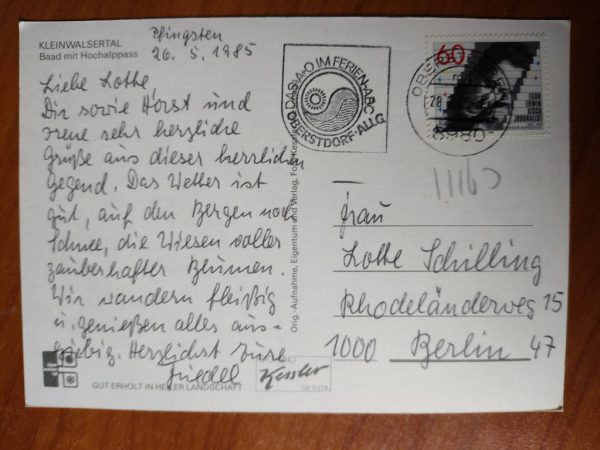 KLEINWALSERTAL
Baad mit Hochalppass
Pfingsten
26. 5. 1985
Liebe Lotte!
Dir sowie Horst und
Irene sehr herzliche
Grüße aus dieser herrlichen
Gegend. Das Wetter ist
gut, auf den Bergen noch
Schnee, die Wiesen voller
zauberhafter Blumen.
Wir wandern fleißig
u. genießen alles aus-
giebig. Herzlichst Eure
Friedel
GUT ERHOLT IN HEILER LANDSCHAFT
Orig.-Aufnahme, Eigentum und Verlag, Foto Kessler
Kessler
RIEZLERN
DAS A+O IM FERIEN-ABC
OBERSTDORF-ALLG.
8980
60
EGON
ERWIN
KISCH
JOURNALIST
11160
Frau
Lotte Schilling
Rhodeländerweg 15
1000 Berlin 47